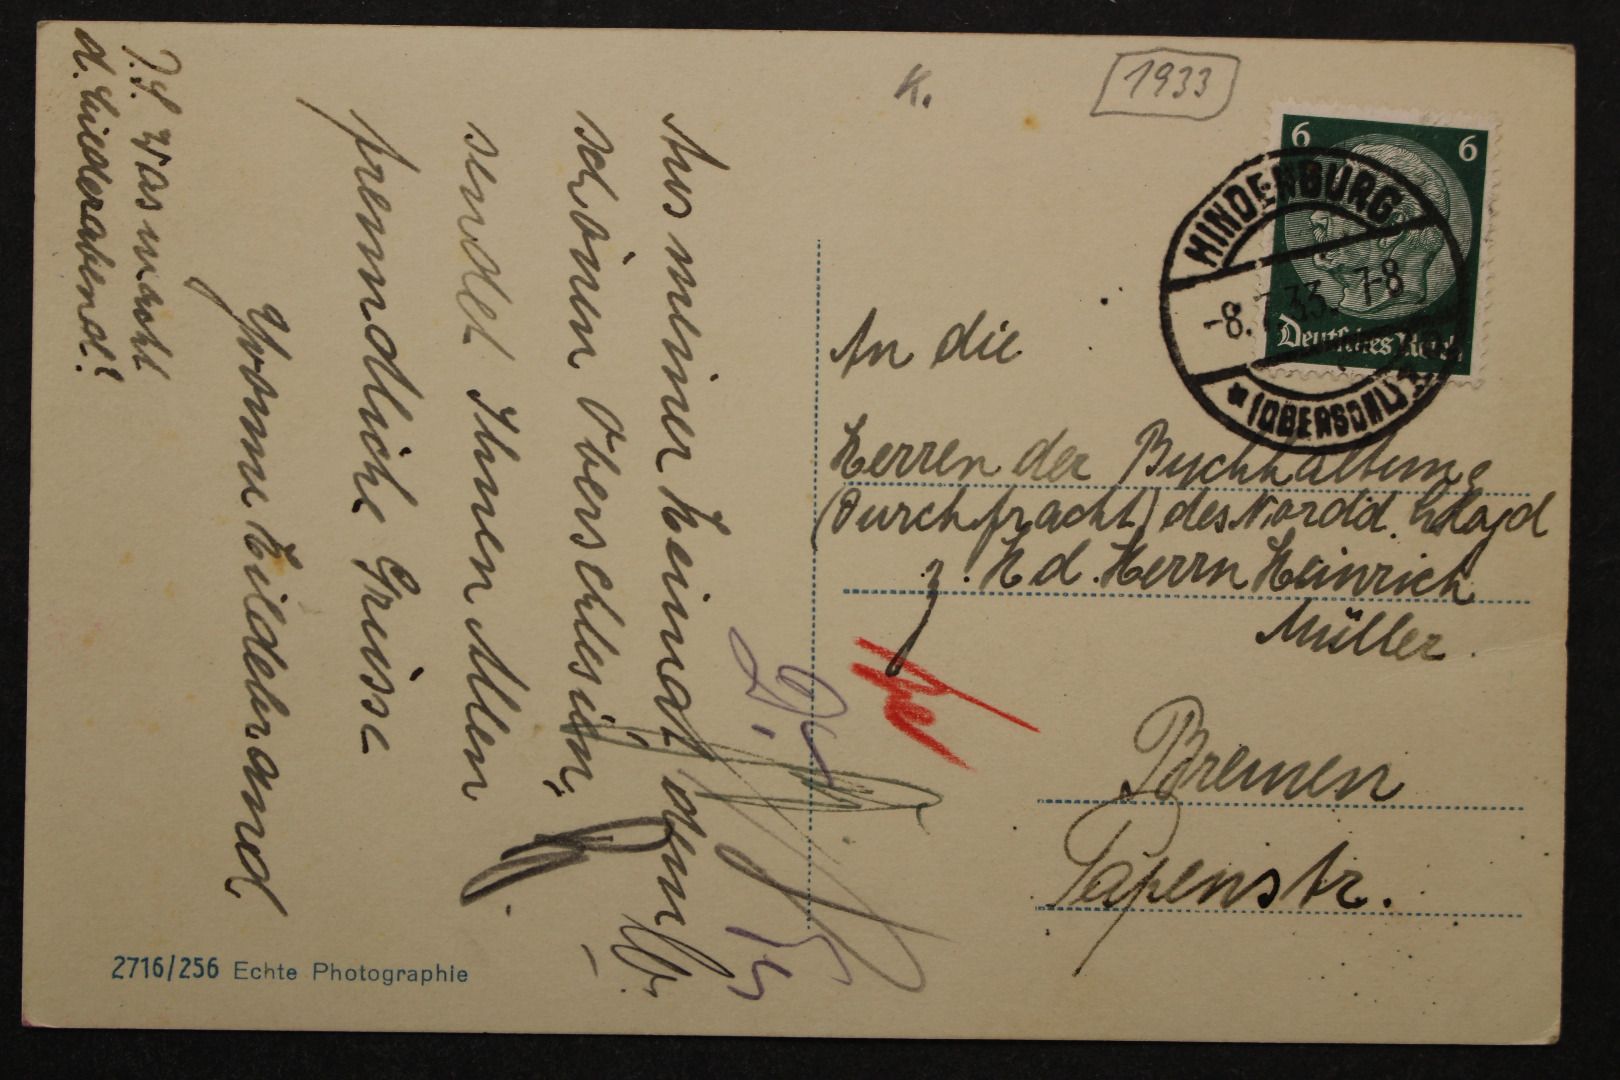 Aus meiner Heimat dem
schönen Oberschlesien,
sendet Ihnen Allen
freundliche Grüsse
Yvonne Hildebrand
P.S. Was macht
d. Liederabend??
2716/256 Echte Photographie
K.
1933
6 6
Deutsches Reich
HINDENBURG
-8.7.33. 7-8
* (OBERSCHL) *
An die
Herren der Buchhaltung
(Durchfracht) des Nordd. Lloyd
z. Hd. Herrn Heinrich
Müller.
Bremen
Papenstr.